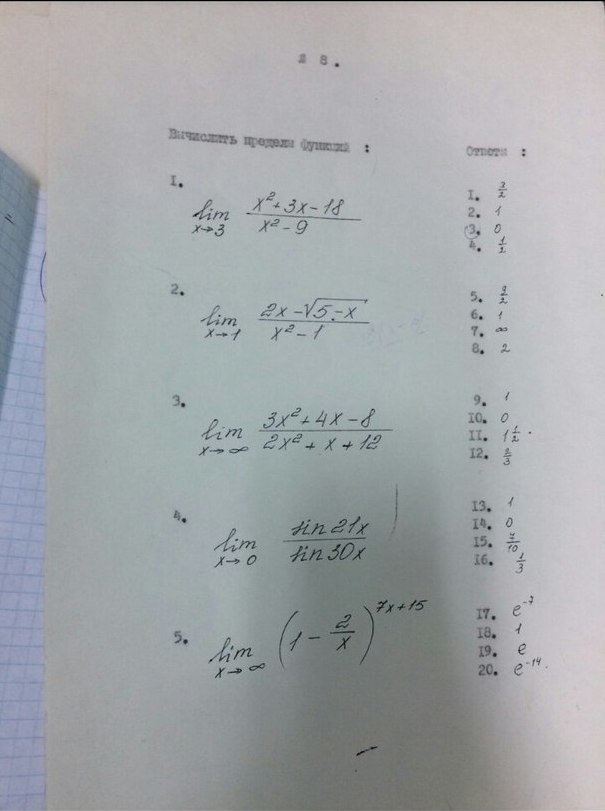 № 8.
Вычислить пределы функций :
Ответы :
1.
lim x→3 (x²+3x-18)/(x²-9)
1. 3/2
2. 1
3. 0
4. 1/2
2.
lim x→1 (2x-√(5-x))/(x²-1)
5. 9/2
6. 1
7. ∞
8. 2
3.
lim x→∞ (3x²+4x-8)/(2x²+x+12)
9. 1
10. 0
11. 1 1/2
12. 2/3
4.
lim x→0 sin21x/sin30x
13. 1
14. 0
15. 7/10
16. 1/3
5.
lim x→∞ (1-2/x)^(7x+15)
17. e⁻⁷
18. 1
19. e
20. e⁻¹⁴.